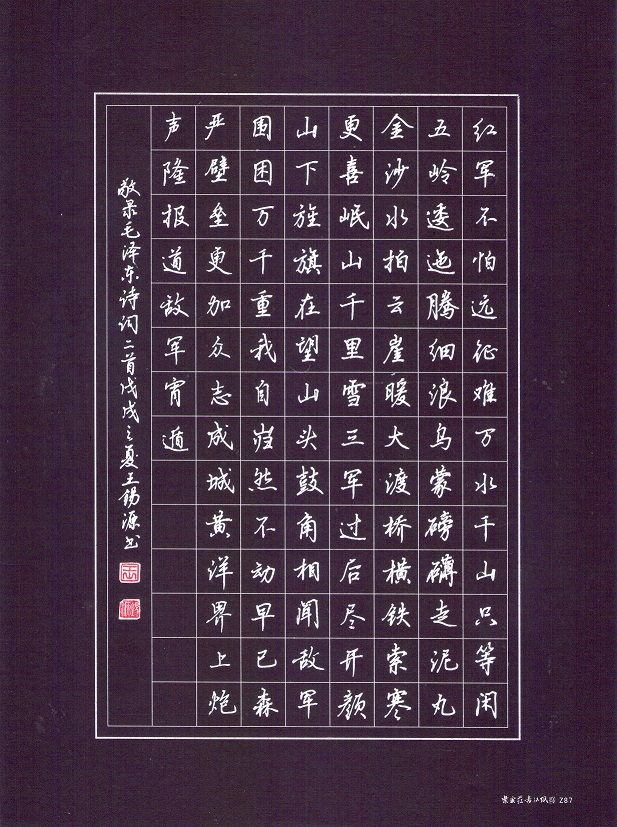 红军不怕远征难万水千山只等闲
五岭逶迤腾细浪乌蒙磅礴走泥丸
金沙水拍云崖暖大渡桥横铁索寒
更喜岷山千里雪三军过后尽开颜
山下旌旗在望山头鼓角相闻敌军
围困万千重我自岿然不动早已森
严壁垒更加众志成城黄洋界上炮
声隆报道敌军宵遁
敬录毛泽东诗词二首戊戌之夏王锡源书
287